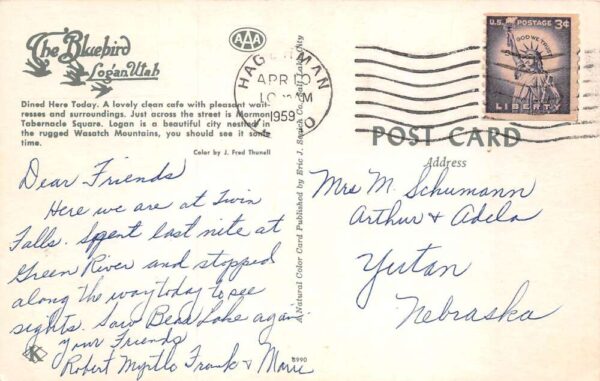 The Bluebird
Logan, Utah
AAA
Dined Here Today. A lovely clean cafe with pleasant wait-
resses and surroundings. Just across the street is Mormon
Tabernacle Square. Logan is a beautiful city nestled in
the rugged Wasatch Mountains, you should see it some
time.
Color by J. Fred Thunell
Dear Friends
Here we are at Twin
Falls. Spent last nite at
Green River and stopped
along the way today to see
sights. Saw Bear Lake again
your Friends
Robert Myrtle Frank & Marie
K
A Natural Color Card Published by Eric J. Lake City
8990
HAGERMAN
APR 10
M
1959
U.S. POSTAGE 3¢
IN GOD WE TRUST
LIBERTY
POST CARD
Address
Mrs M. Schumann
Arthur & Adela
Yutan
Nebraska